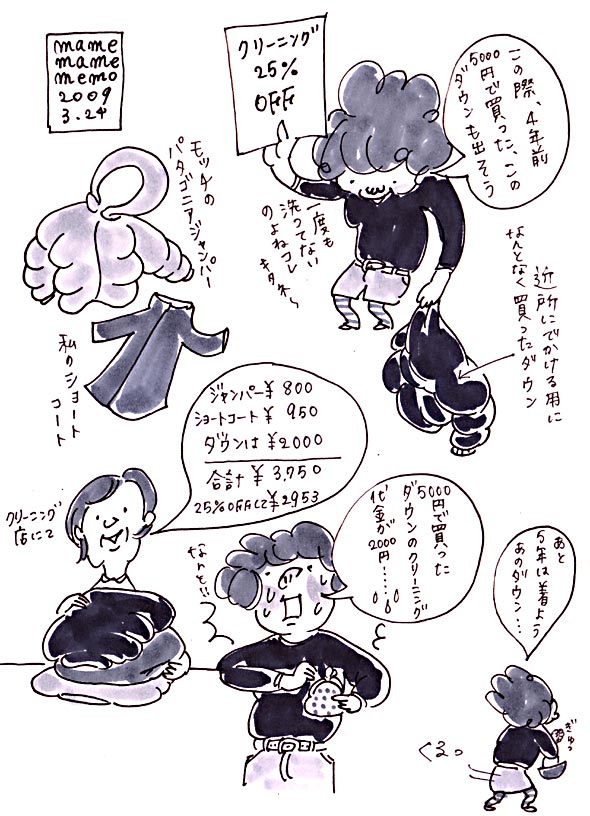 mame
mame
memo
2009
3.24
クリーニング
25%
OFF
この際、4年前
5000円で買った、この
ダウンも出そう
モッチの
パタゴニアジャンパー
一度も
洗ってない
のよねコレ
近所にでかける用に
なんとなく買ったダウン
私のショート
コート
ジャンパー¥800
ショートコート¥950
ダウンは¥2000
合計¥3,750
25%OFFにして¥2953
クリーニング
店にて
なんと!!
5000円で買った
ダウンのクリーニング
代金が2000円……
あと
5年は着よう
あのダウン…
ぎゅっ
ぐるっ